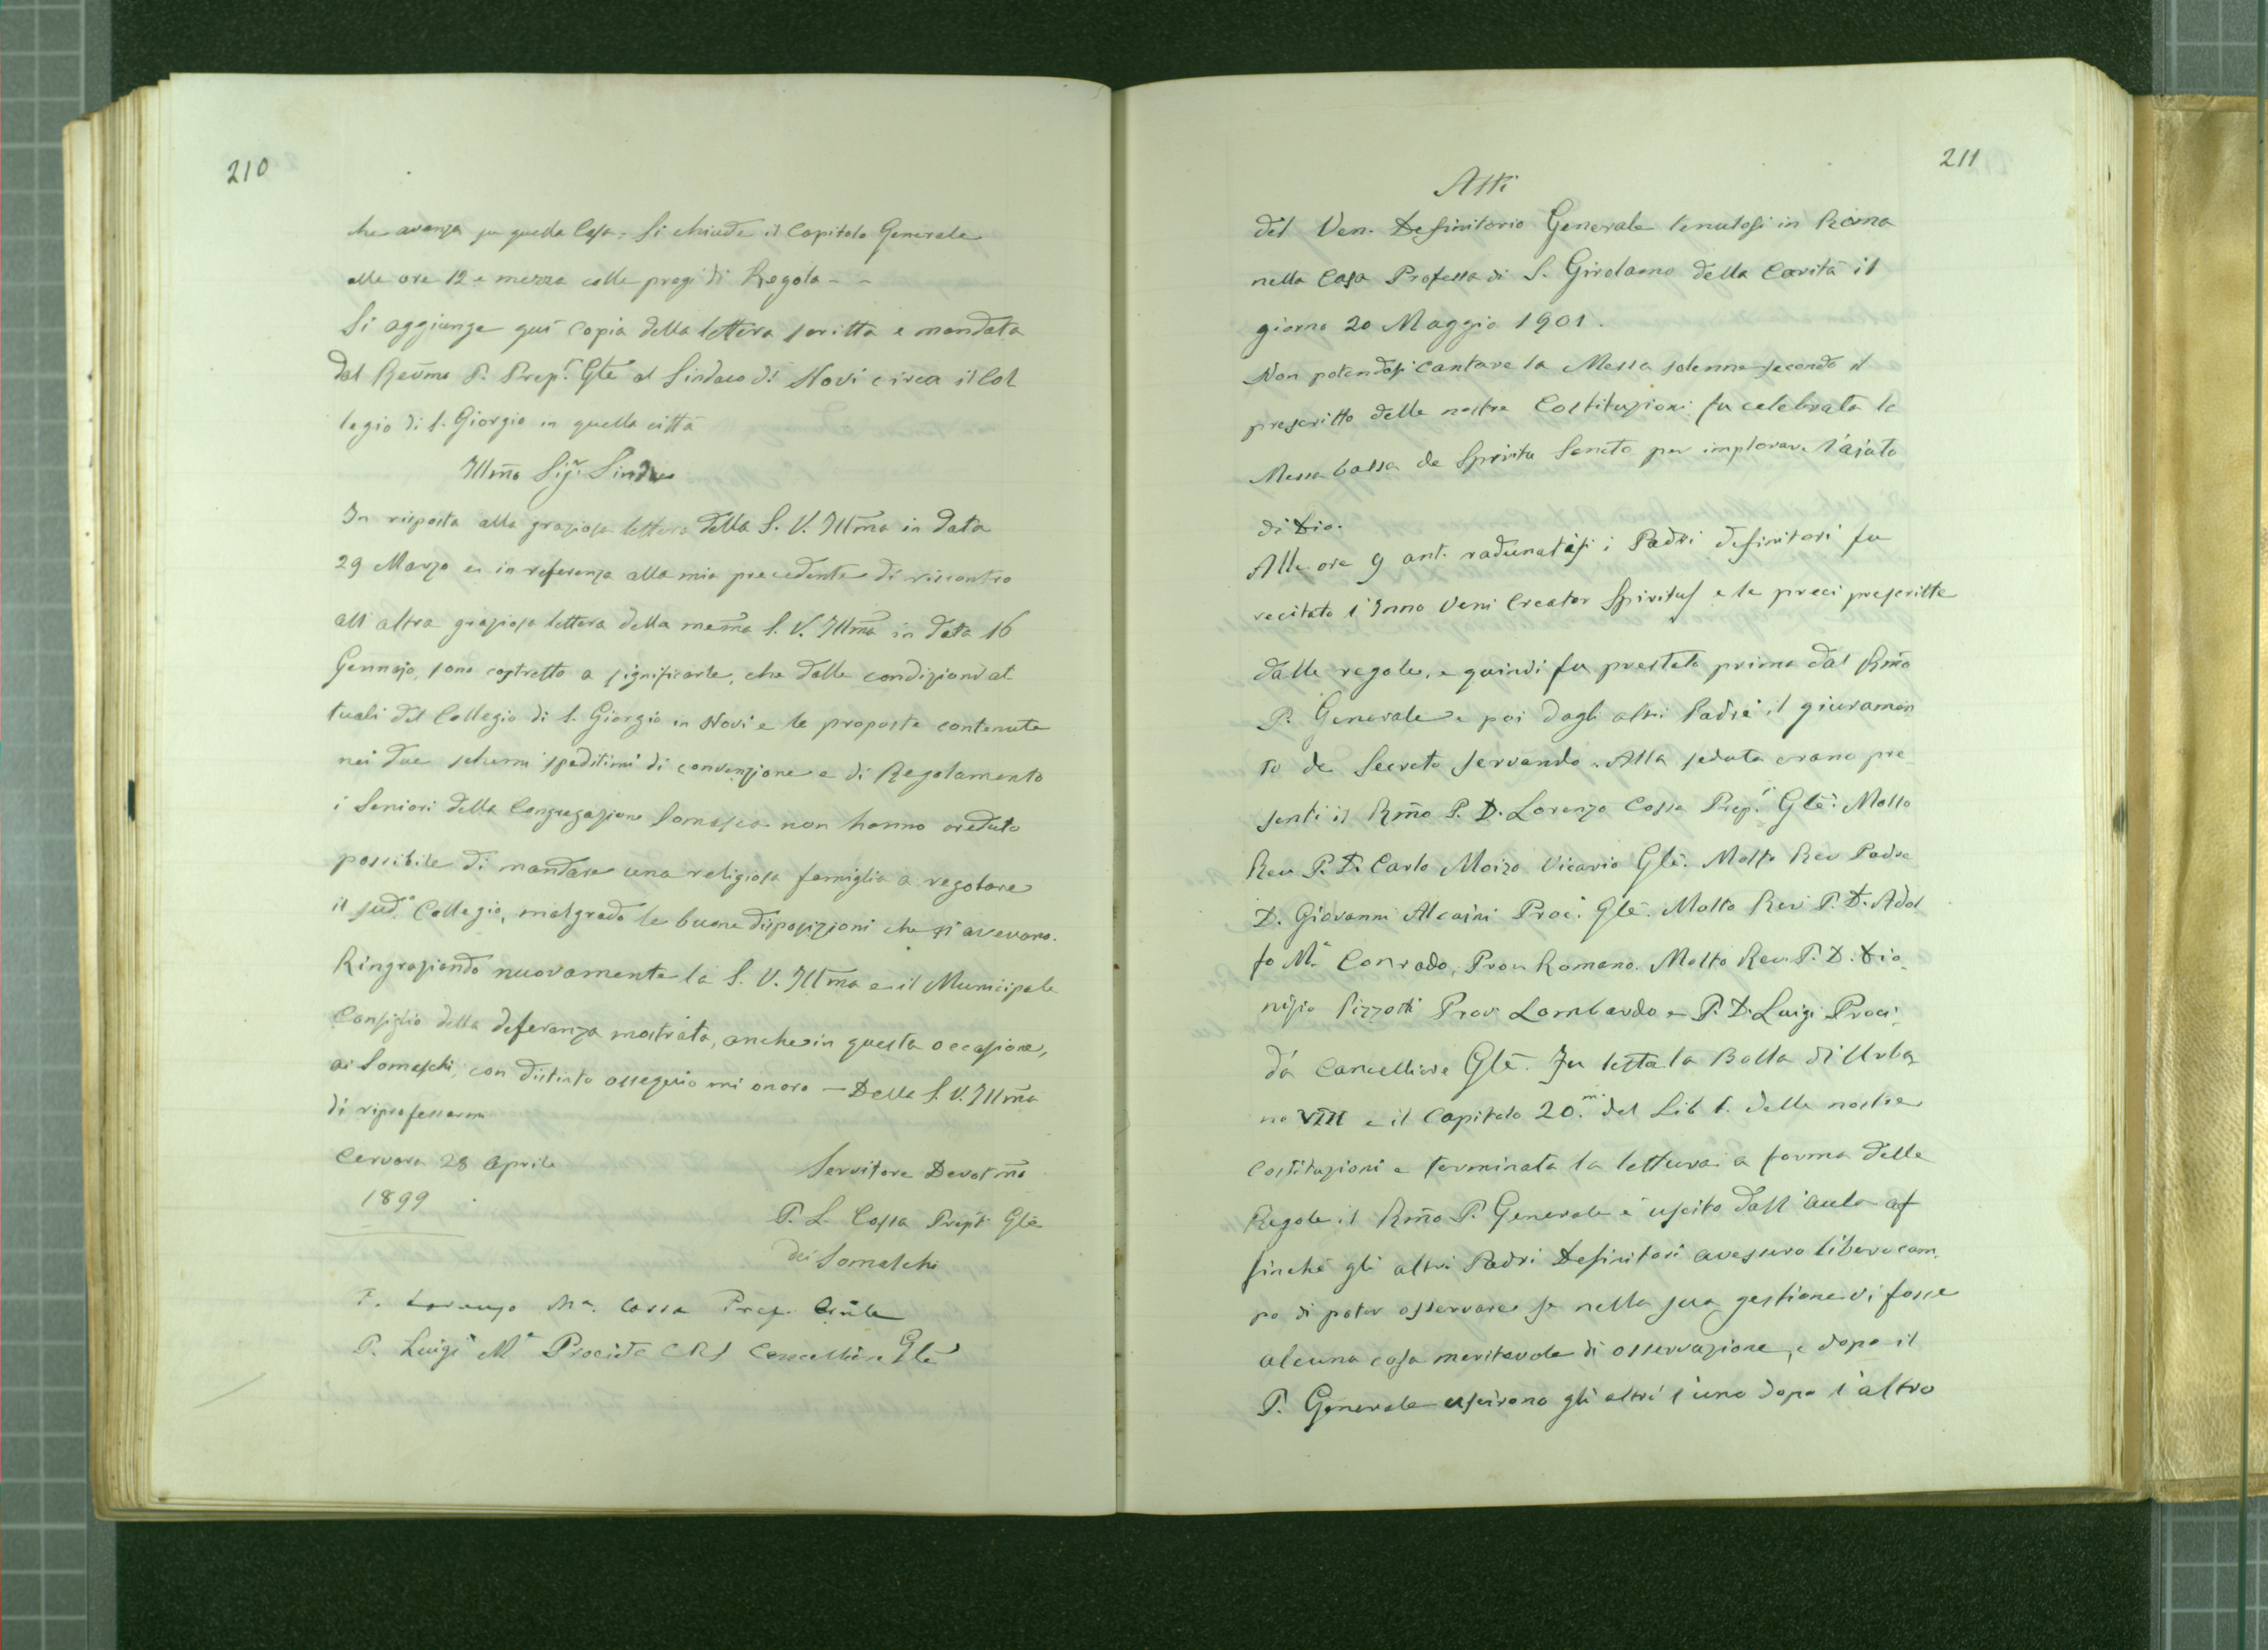 210
che avanza su quella Casa. Si chiude il Capitolo Generale
alle ore 12 e mezza colle preci di Regola - -
Si aggiunge qui copia della lettera scritta e mandata
dal Revm̃o P. Prep.º Glẽ al Sindaco di Novi circa il Col
legio di S. Giorgio in quella città
Illm̃o Sig.r Sindaco
In risposta alla graziosa lettera della S. V. Illm̃a in data
29 Marzo ed in referenza alla mia precedente di riscontro
all'altra graziosa lettera della mem̃a S. V. Illm̃a in data 16
Gennajo, sono costretto a significarle, che dalle condizioni at
tuali del Collegio di S. Giorgio in Novi e le proposte contenute
nei due schemi speditimi di convenzione e di Regolamento
i Seniori della Congregazione Somasca non hanno creduto
possibile di mandare una religiosa famiglia a regolare
il sud.º Collegio, malgrado le buone disposizioni che si avevano.
Ringraziando nuovamente la S. V. Illm̃a e il Municipale
Consiglio della deferenza mostrata, anche in questa occasione,
ai Somaschi, con distinto ossequio mi onoro — Della S. V. Illm̃a
di riprofessarmi
Cervara 28 Aprile
1899
Servitore Devotm̃o
P. L. Cossa Prep.t Glẽ
dei Somaschi
P. Lorenzo Mª. Cossa Prep. Gn̄le
P. Luigi Mª Procida CRS Cancelliere Glẽ
211
Atti
del Ven. Definitorio Generale tenutosi in Roma
nella Casa Professa di S. Girolamo della Carità il
giorno 20 Maggio 1901.
Non potendosi cantare la Messa solenne secondo il
prescritto delle nostre Costituzioni fu celebrata la
Messa bassa de Spiritu Sancto per implorare l'ajuto
di Dio.
Alle ore 9 ant. radunatisi i Padri definitori fu
recitato l'Inno Veni Creator Spiritus e le preci prescritte
dalle regole, e quindi fu prestato prima dal Rm̃o
P. Generale e poi dagli altri Padri il giuramen
to de Secreto servando. Alla seduta erano pre
senti il Rm̃o P. D. Lorenzo Cossa Prep.º Glẽ. Molto
Rev P. D. Carlo Moizo Vicario Glẽ. Molto Rev Padre
D. Giovanni Alcaini Proc. Glẽ. Molto Rev P. D. Adol
fo Mª Conrado, Prov Romano. Molto Rev. P. D. Dio_
nisio Pizzotti Prov Lombardo e P. D. Luigi Proci_
da Cancelliere Glẽ. Fu letta la Bolla di Urba
no VIII e il Capitolo 20.m° del Lib 1. delle nostre
Costituzioni e terminata la lettura a forma delle
Regole il Rm̃o P. Generale è uscito dall'aula af
finchè gli altri Padri Definitori avessero libero cam_
po di poter osservare se nella sua gestione vi fosse
alcuna cosa meritevole di osservazione, e dopo il
P. Generale uscirono gli altri l'uno dopo l'altro